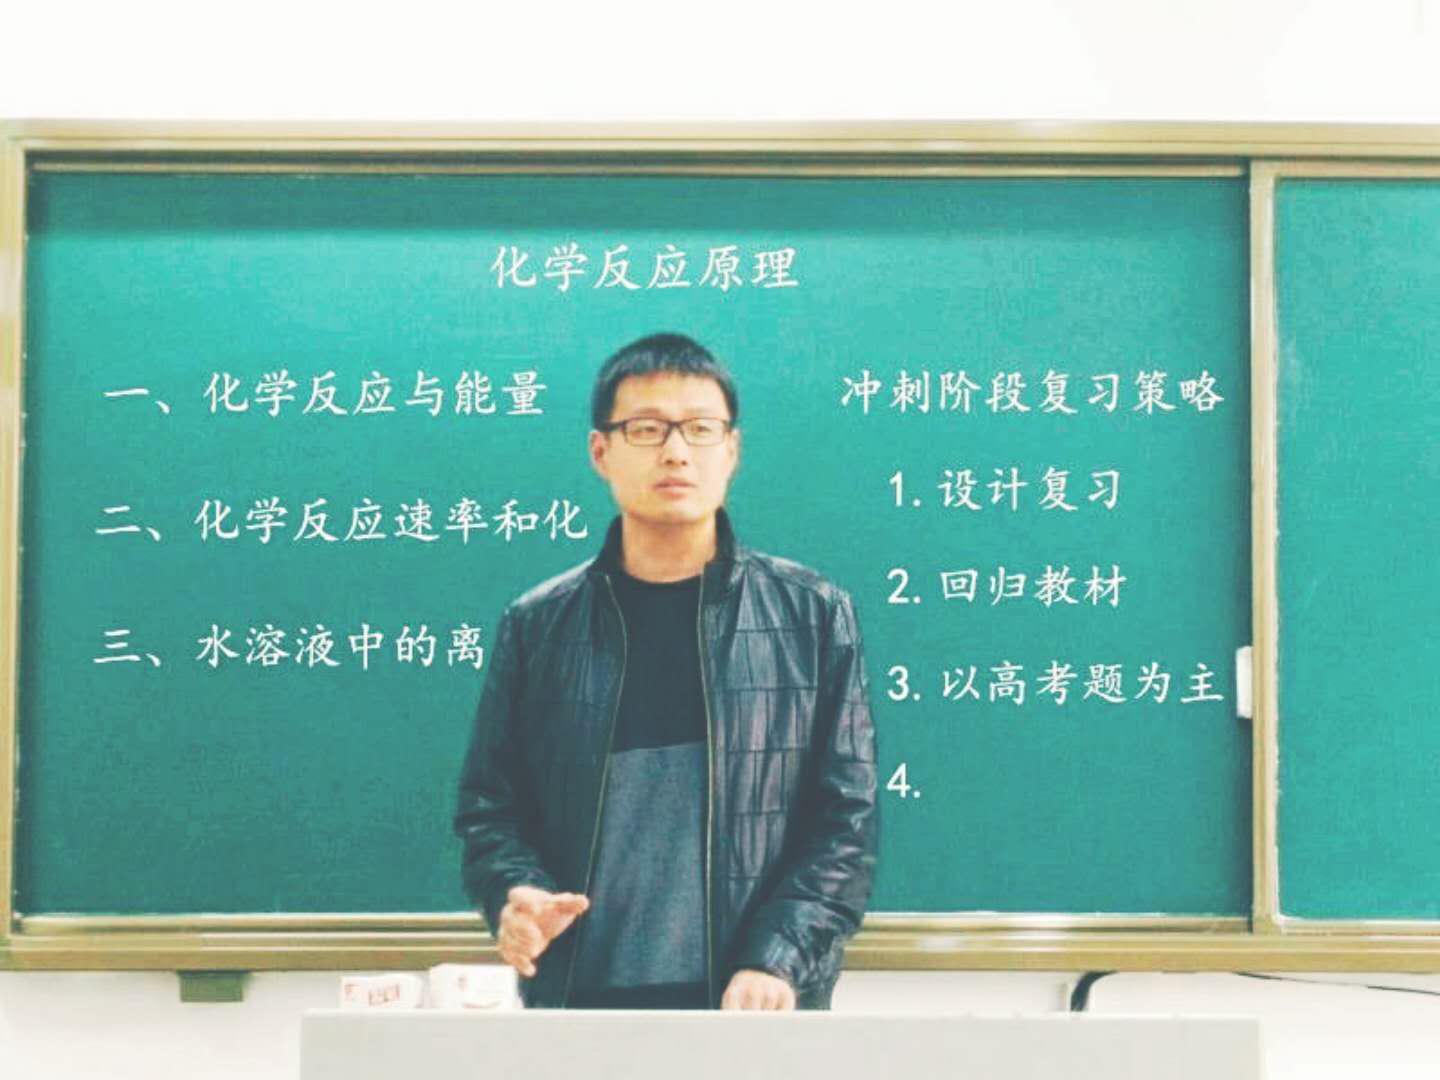 化学反应原理
一、化学反应与能量
二、化学反应速率和化
三、水溶液中的离
冲刺阶段复习策略
1.设计复习
2.回归教材
3.以高考题为主
4.